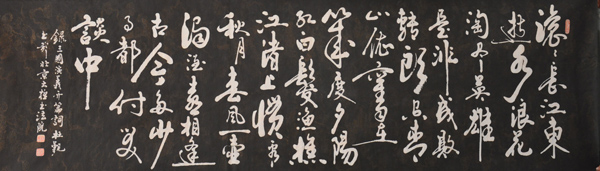 滾滾長江東
逝水浪花
淘尽英雄
是非成敗
轉頭空青
山依舊在
幾度夕陽
紅白髮漁樵
江渚上慣看
秋月春風一壺
濁酒喜相逢
古今多少
事都付笑
談中
錄三國演義开篇詞